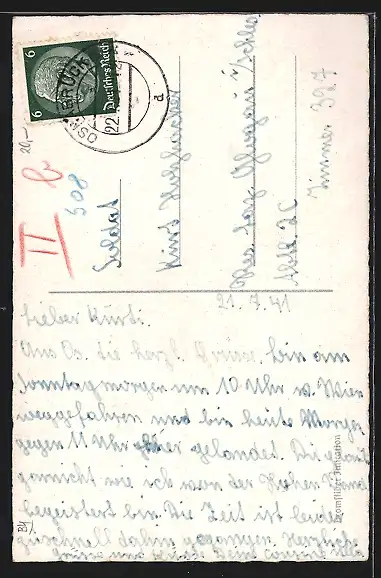 Deutsches Reich
6
6
22.
a
20,-
II b
508
Soldat
Kurt
Res. Laz. Glogau i/Schles.
Abtl. 2C
Zimmer 327
21.7.41
Lieber Kurti.
Aus Os. die herzl. Grüsse. Bin am
Sonntagmorgen um 10 Uhr v. Wien
weggefahren und bin heute Morgen
gegen 11 Uhr hier gelandet. Die
garnicht wie ich von der Hohen
begeistert bin. Die Zeit ist leider
zu schnell dahin gegangen. Herzliche
Grüsse und Dein